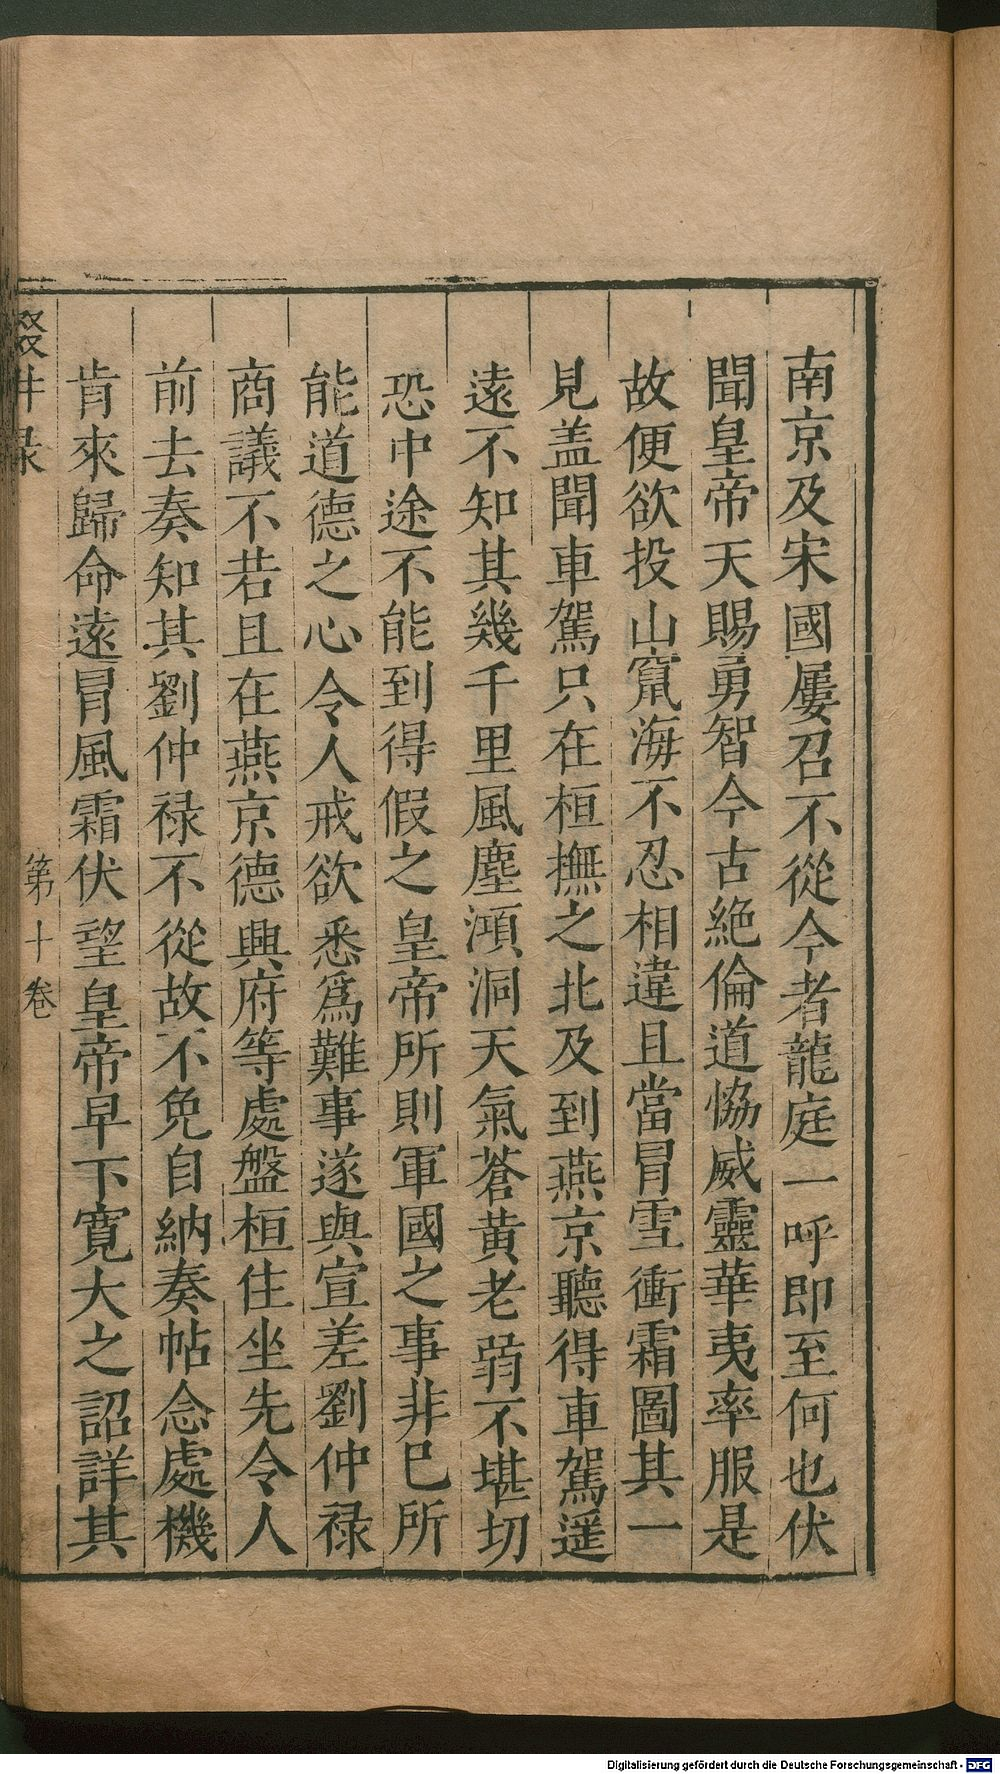 南京及宋國屢召不從今者龍庭一呼即至何也伏
聞皇帝天賜勇智今古絶倫道恊威靈華夷率服是
故便欲投山竄海不忍相違且當冐雪衝霜圖其一
見盖聞車駕只在桓撫之北及到燕京聽得車駕遥
遠不知其幾千里風塵澒洞天氣蒼黄老弱不堪切
恐中途不能到得假之皇帝所則軍國之事非巳所
能道德之心令人戒欲悉爲難事遂與宣差劉仲禄
商議不若且在燕京德興府等處盤桓住坐先令人
前去奏知其劉仲禄不從故不免自納奏帖念處機
肯來歸命遠冒風霜伏望皇帝早下寛大之詔詳其
第十卷
Digitalisierung gefördert durch die Deutsche Forschungsgemeinschaft - DFG